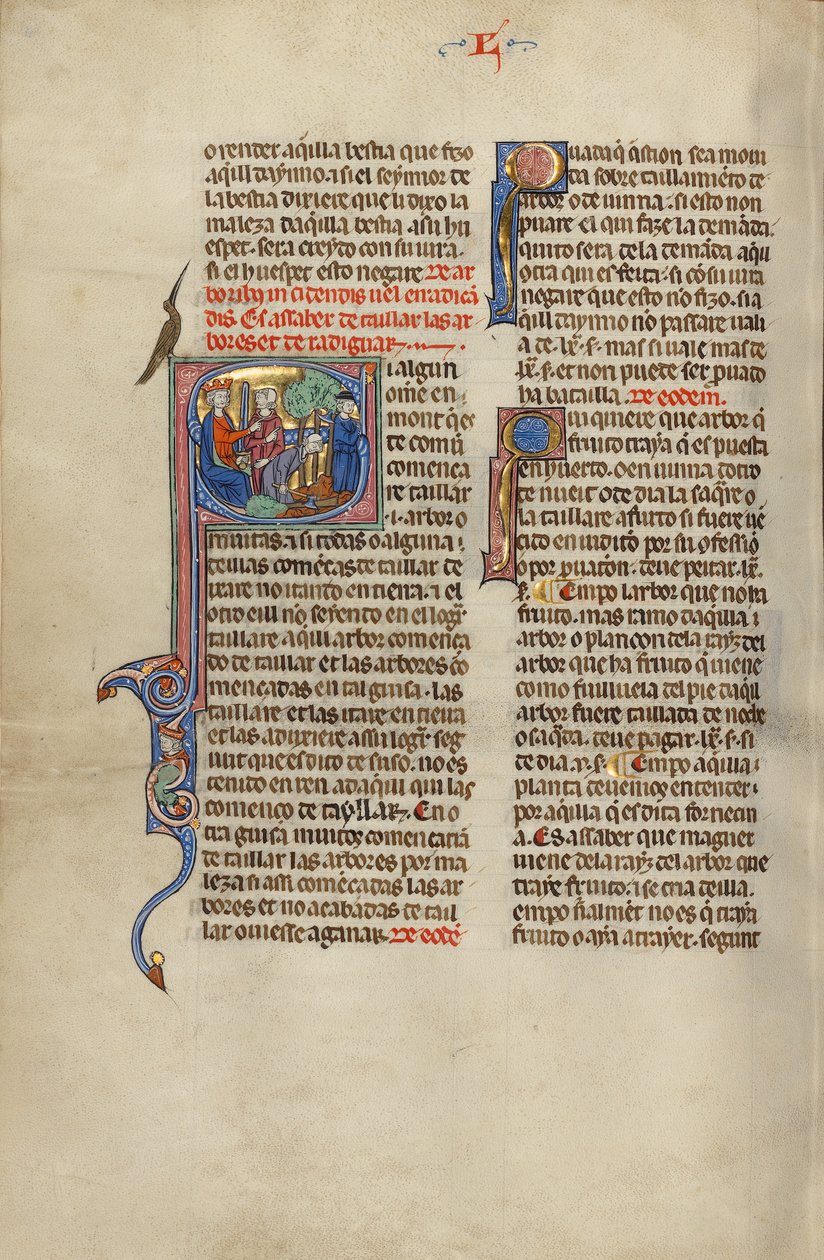 L
o render aq̃illa bestia que fizo
aq̃ll daynnio. ⁊ si el seynnor de
la bestia dixiere que li dixo la
maleza daq̃illa bestia. a su hu
espet. sera creydo con su iura.
si el huespet esto negare. De ar
boribꝫ incidendis uel eradicā
dis. Es assaber de taillar las ar
bores et de radiguar.
i algun
omē en
mont q̃ es
de comū
comença
re taillar
.i. arbor o
muitas. ⁊ si todas o alguna.
deillas comēcas de taillar. de
ixare no itando en tierra. ⁊ el
otro eill nō seyendo en el logr̃
taillare aq̃ill arbor comença
do de taillar et las arbores cō
mencadas en tal guisa. las
taillare et las itare en tierra
et las aduxiere a su logr̃ seg
unt que es dito de suso. no es
tenido en ren ad aqui qui las
començo de tayllar. En o
tra guisa muitos començariā
de taillar las arbores por ma
leza si assi comēçadas las ar
bores et no acabadas de tail
lar ouiesse a ganar. De eodē
Quada q̄ q̄stion sea mou
da sobre taillamiēto de
arbor o de uinna. si esto non
puare. el qui faze la demāda.
quito sera de la demāda aq̃ll
otra qui es feita. si cō su iura
negare que esto nō fizo. si a
q̃ill daynnio nō passare uali
a de .lx. s. mas si uale mas de
.lx. s. et non puede ser puado
ha batailla. De eodem.
Qui quiere que arbor q̄
fruito traya q̄ es puesta
en huerto. o en uinna dotro
de nueit o de dia la sacare o
la taillare a furto si fuere uē
cido en iudicio por su 9fessiō
o por puation. deue peitar .lx.
s. Empo larbor que no ha
fruito. mas ramo daq̃illa.
arbor o plancon de la rayz del
arbor que ha fruito q̄ uiene
como fuilluela del pie daq̃ll
arbor fuere taillada de noche
o sacada. deue pagar .lx. s. si
de dia .v. s. Empo aq̃illa.
planta deuemos entender.
por aq̃illa q̄ es dita fornecin
a. Es assaber que maguer
uiene de la rayz del arbor que
traye fruito. ⁊ se cria deilla.
empo fīalmēt no es q̄ traya
fruito o aya a trayer. segunt